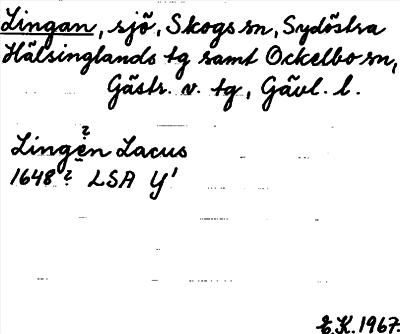 Lingan, sjö, Skogs sn, Sydöstra
Hälsinglands tg samt Ockelbo sn,
Gästr. v. tg, Gävl. l.
?
Lingen Lacus
1648? LSA Y'
E.K. 1967.